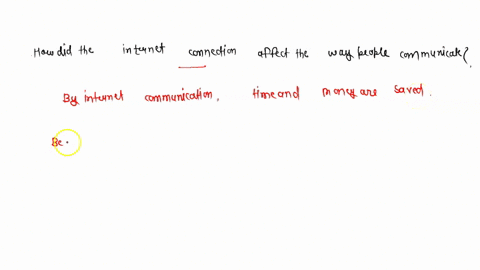 How did the internet connection affect the way people communicate?
By internet communication, time and money are saved.
Be